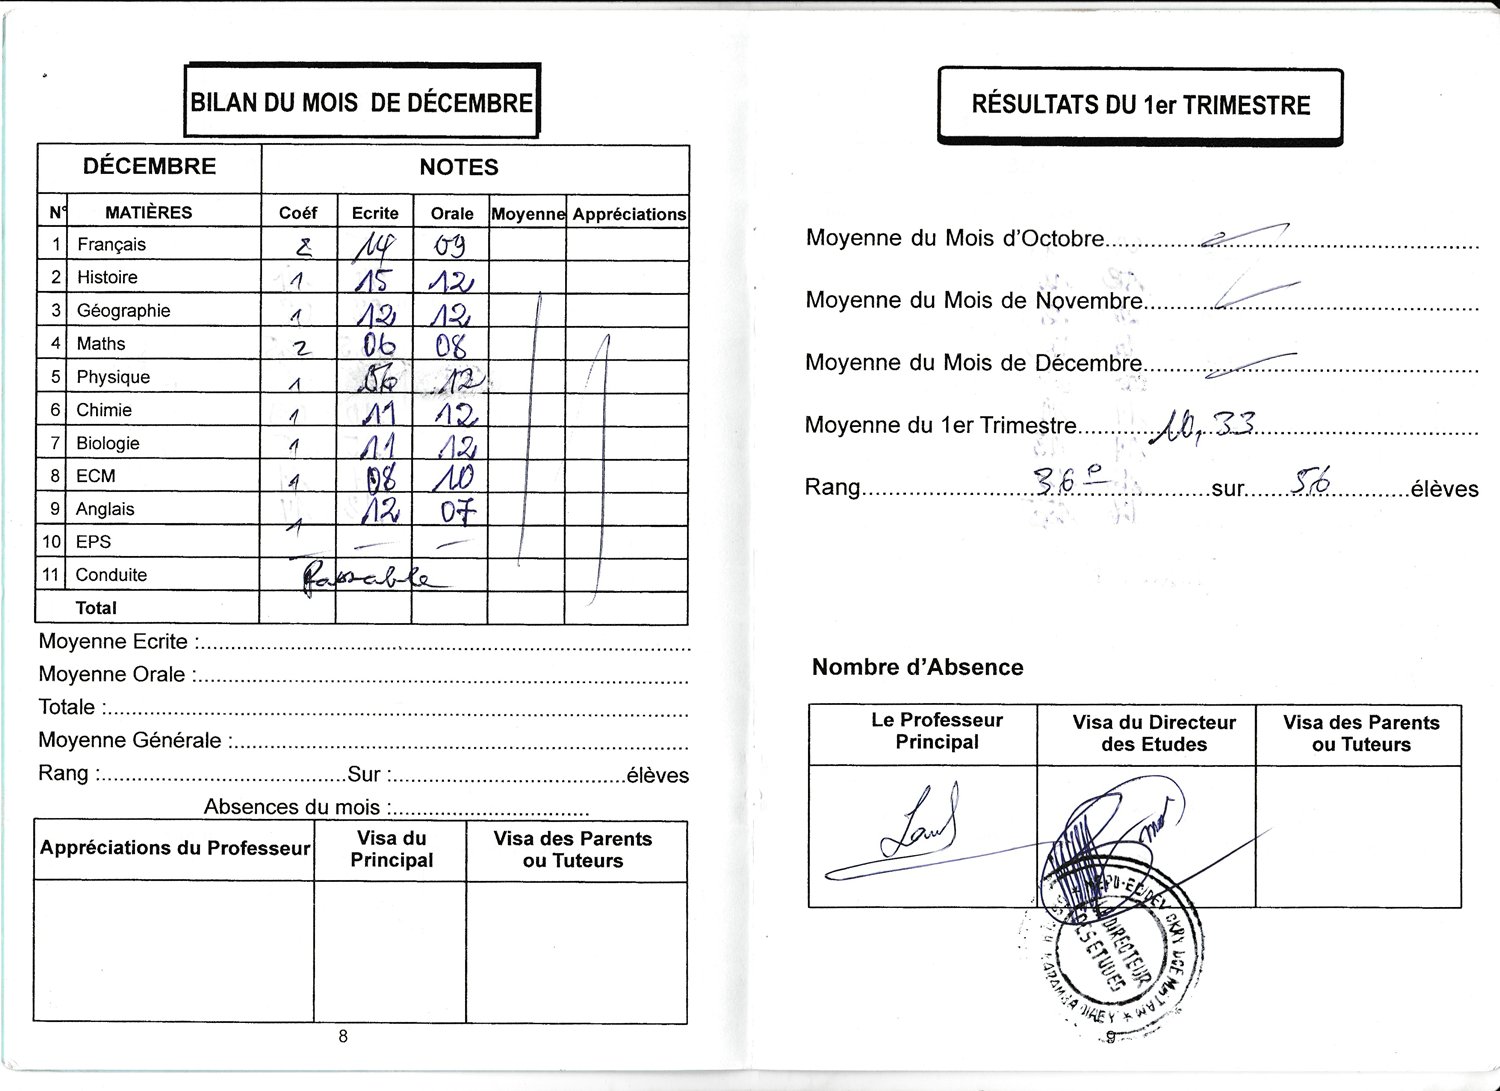 BILAN DU MOIS DE DÉCEMBRE
DÉCEMBRE NOTES
N° MATIÈRES Coéf Ecrite Orale Moyenne Appréciations
1 Français 2 14 09
2 Histoire 1 15 12
3 Géographie 1 12 12
4 Maths 2 06 08
5 Physique 1 06 12
6 Chimie 1 11 12
7 Biologie 1 11 12
8 ECM 1 08 10
9 Anglais 1 12 07
10 EPS
11 Conduite Passable
Total
Moyenne Ecrite :
Moyenne Orale :
Totale :
Moyenne Générale :
Rang : Sur : élèves
Absences du mois :
Appréciations du Professeur Visa du Principal Visa des Parents ou Tuteurs
8
RÉSULTATS DU 1er TRIMESTRE
Moyenne du Mois d'Octobre
Moyenne du Mois de Novembre
Moyenne du Mois de Décembre
Moyenne du 1er Trimestre 10,33
Rang 36e sur 56 élèves
Nombre d'Absence
Le Professeur Principal Visa du Directeur des Etudes Visa des Parents ou Tuteurs
DIRECTEUR
DES ETUDES
9